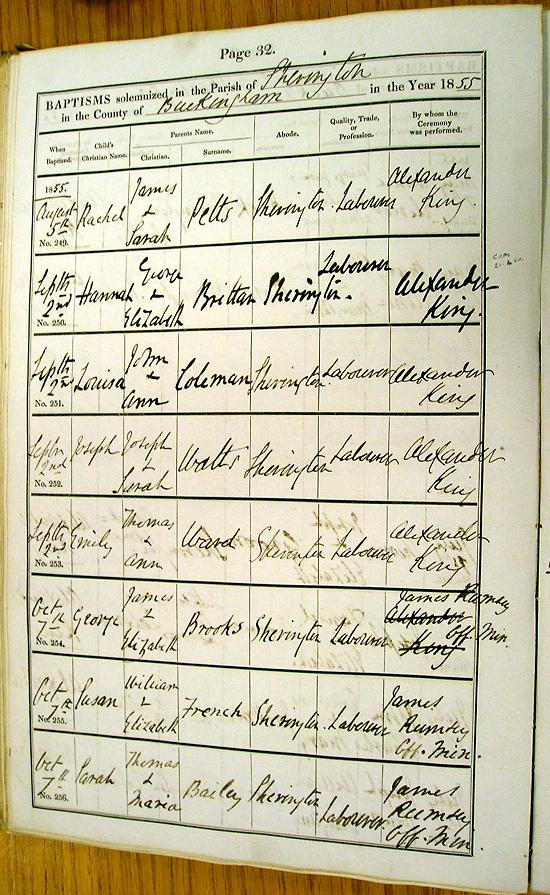 Page 32.
BAPTISMS solemnized in the Parish of Sherington
in the County of Buckingham in the Year 1855
When Baptized. Child's Christian Name. Parents Name. Christian. Surname. Abode. Quality, Trade, or Profession. By whom the Ceremony was performed.
1855. August 5th No. 249. Rachel James & Sarah Petts Sherington Labourer Alexander King.
Septh 2nd No. 250. Hannah George & Elizabeth Brittan Sherington. Labourer Alexander King.
Septh 2nd No. 251. Louisa John & Ann Coleman Sherington Labourer Alexander King
Septbr 2nd No. 252. Joseph Joseph & Sarah Watts Sherington Labourer Alexander King
Septh 2nd No. 253. Emily Thomas & Ann Ward Sherington Labourer Alexander King
Oct 7th No. 254. George James & Elizabeth Brooks Sherington Labourer James Rumsey Alexander King Off. Min.
Oct 7th No. 255. Susan William & Elizabeth French Sherington Labourer James Rumsey Off. Min.
Oct 7th No. 256. Sarah Thomas & Maria Bailey Sherington Labourer James Rumsey Off. Min.